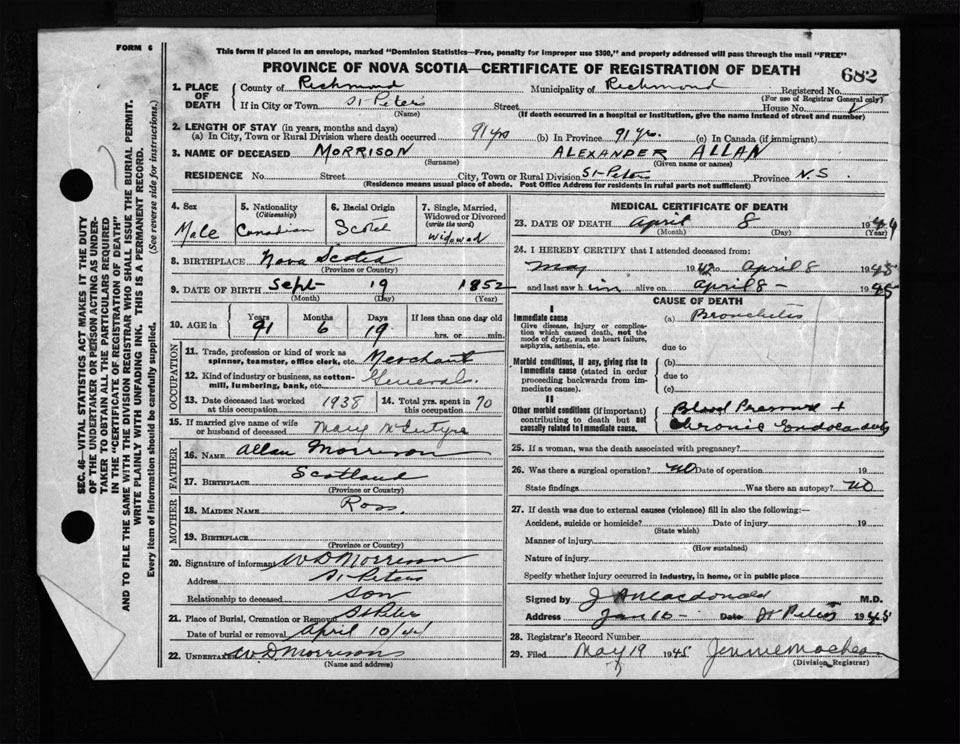 FORM 6
This form if placed in an envelope, marked "Dominion Statistics—Free, penalty for improper use $300," and properly addressed will pass through the mail "FREE"
PROVINCE OF NOVA SCOTIA—CERTIFICATE OF REGISTRATION OF DEATH
682
SEC. 46—VITAL STATISTICS ACT MAKES IT THE DUTY
OF THE UNDERTAKER OR PERSON ACTING AS UNDER-
TAKER TO OBTAIN ALL THE PARTICULARS REQUIRED
IN THE "CERTIFICATE OF REGISTRATION OF DEATH"
AND TO FILE THE SAME WITH THE DIVISION REGISTRAR WHO SHALL ISSUE THE BURIAL PERMIT.
WRITE PLAINLY WITH UNFADING INK. THIS IS A PERMANENT RECORD.
Every item of information should be carefully supplied. (See reverse side for instructions.)
1. PLACE OF DEATH
County of Richmond Municipality of Richmond Registered No.
(For use of Registrar General only)
If in City or Town St-Peters Street House No.
(Name) (If death occurred in a hospital or institution, give the name instead of street and number)
2. LENGTH OF STAY (in years, months and days)
(a) In City, Town or Rural Division where death occurred 91 yrs (b) In Province 91 yrs. (c) In Canada (if immigrant)
3. NAME OF DECEASED MORRISON ALEXANDER ALLAN
(Surname) (Given name or names)
RESIDENCE No. Street City, Town or Rural Division St-Peters Province N.S.
(Residence means usual place of abode. Post Office Address for residents in rural parts not sufficient)
4. Sex
Male
5. Nationality
(Citizenship)
Canadian
6. Racial Origin
Scotch
7. Single, Married,
Widowed or Divorced
(write the word)
Widowed
8. BIRTHPLACE Nova Scotia
(Province or Country)
9. DATE OF BIRTH Sept 19 1852
(Month) (Day) (Year)
10. AGE in
Years Months Days If less than one day old
91 6 19 hrs. or min.
OCCUPATION
11. Trade, profession or kind of work as
spinner, teamster, office clerk, etc. Merchant
12. Kind of industry or business, as cotton-
mill, lumbering, bank, etc. General.
13. Date deceased last worked
at this occupation 1938
14. Total yrs. spent in
this occupation 70
15. If married give name of wife
or husband of deceased Mary McIntyre
FATHER
16. Name Allan Morrison
17. Birthplace Scotland
(Province or Country)
MOTHER
18. MAIDEN NAME Ross.
19. BIRTHPLACE
(Province or Country)
20. Signature of informant W D Morrison
Address St-Peters
Relationship to deceased Son
21. Place of Burial, Cremation or Removal St Peters
Date of burial or removal April 10/44
22. UNDERTAKER W D Morrison
(Name and address)
MEDICAL CERTIFICATE OF DEATH
23. DATE OF DEATH April 8 19
(Month) (Day) (Year)
24. I HEREBY CERTIFY that I attended deceased from:
May 19 to April 8 1945
and last saw him alive on April 8 - 1945
CAUSE OF DEATH
I
Immediate cause
Give disease, injury or complica-
tion which caused death, not the
mode of dying, such as heart failure,
asphyxia, asthenia, etc.
(a) Bronchitis
due to
Morbid conditions, if any, giving rise to
immediate cause (stated in order
proceeding backwards from im-
mediate cause).
(b)
due to
(c)
II
Other morbid conditions (if important)
contributing to death but not
causally related to immediate cause.
Blood Pressure +
Chronic Endocarditis
25. If a woman, was the death associated with pregnancy?
26. Was there a surgical operation? No Date of operation 19
State findings Was there an autopsy? No
27. If death was due to external causes (violence) fill in also the following:—
Accident, suicide or homicide? Date of injury 19
(State which)
Manner of injury
(How sustained)
Nature of injury
Specify whether injury occurred in industry, in home, or in public place
Signed by J A Macdonald M.D.
Address Date St Peters 1945
28. Registrar's Record Number
29. Filed May 19 1945 Jennie
(Division Registrar)